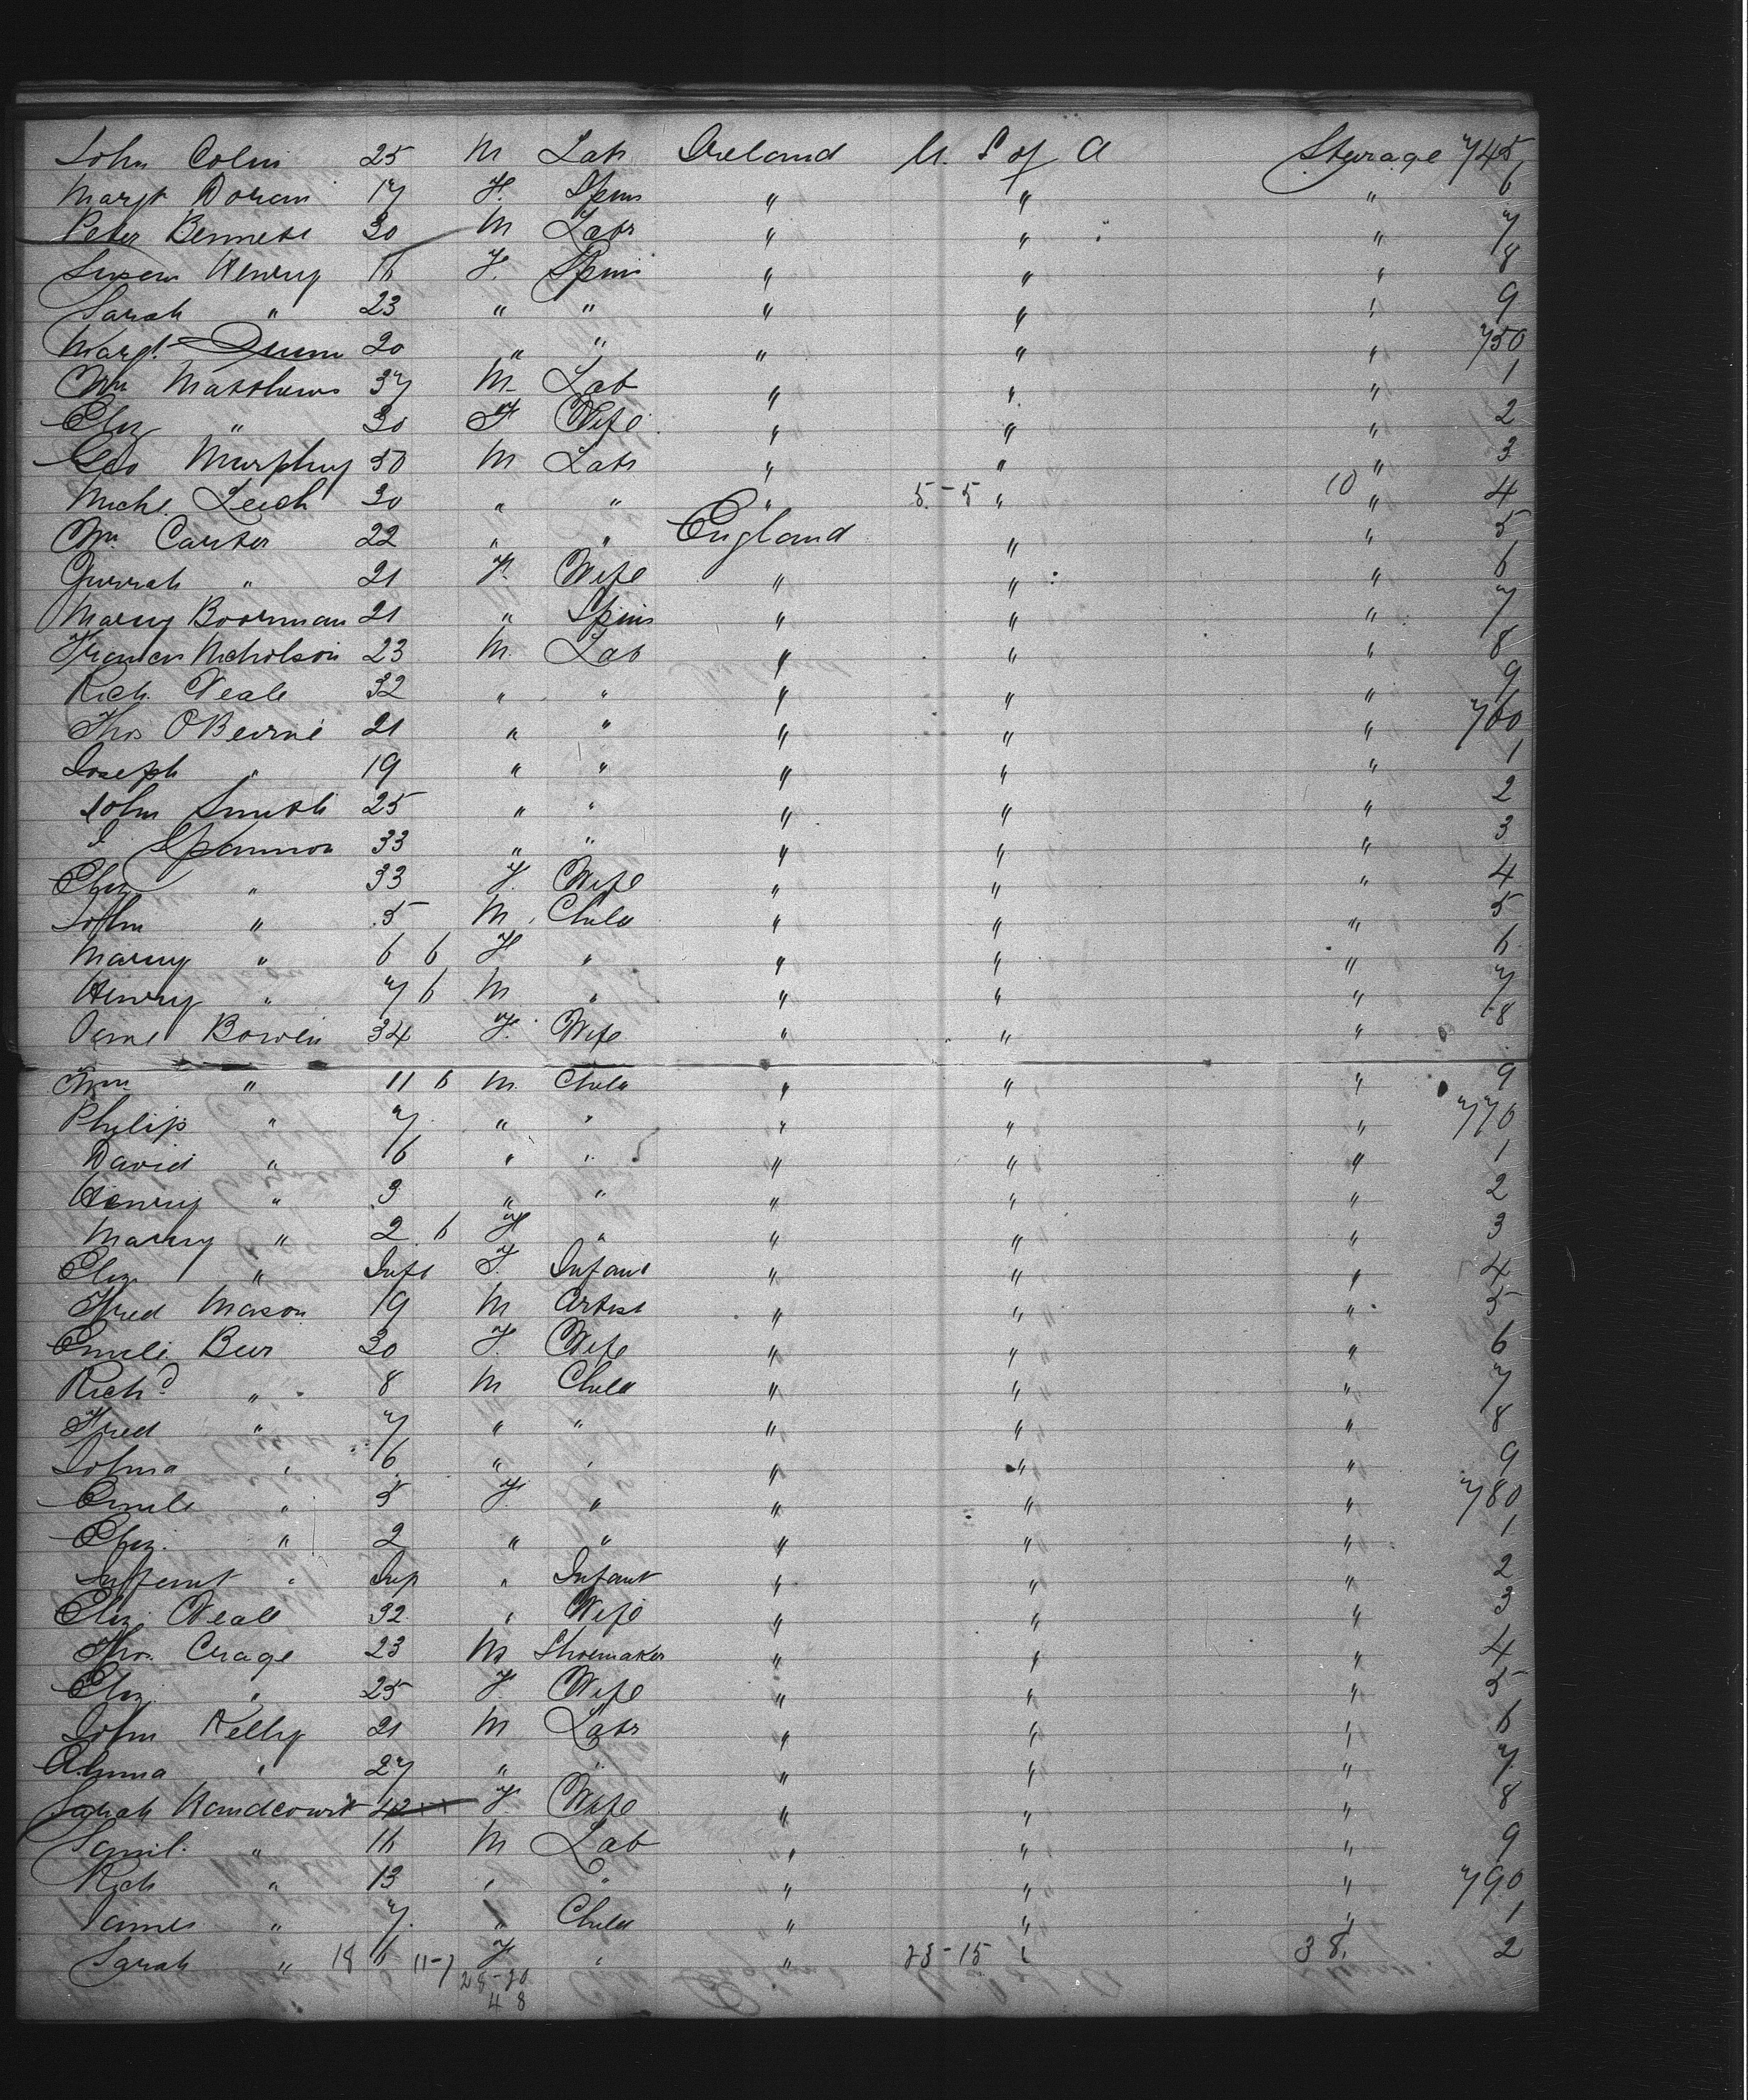 John Colin 25 M Labr Ireland U. S of A Sterage 745
Margt Doran 17 F. Spins " " " 6
Peter Bennett 30 M Labr " " " 7
Susan Henry 16 F. Spins " " " 8
Sarah " 23 " " " " " 9
Margt. Quinn 20 " " " " " 750
Wm Matthews 37 M Lab " " " 1
Eliz " 30 F Wife " " " 2
Geo Murphy 50 M Labr " " " 3
Michl. Leech 30 " " " 5-5 " 10 " 4
Wm. Carter 22 " " England " " 5
" 21 F. Wife " " " 6
Marcy Boorman 21 " Spins " " " 7
Francis Nicholson 23 M. Lab " " " 8
Rich. Neale 32 " " " " " 9
Thos O'Beirne 21 " " " " " 760
Joseph " 19 " " " " " 1
John Smith 25 " " " " " 2
J 33 " " " " " 3
Eliz " 33 F. Wife " " " 4
John " 5 M. Child " " " 5
Marcy " 6 6 F " " " " 6
Henry " 7 6 M " " " " 7
Jane Bowen 34 F. Wife " " " 8
Wm " 11 6 M. Child " " " 9
Philip " 7 " " " " " 770
David " 6 " " " " " 1
Henry " 3 " " " " " 2
Marcy " 2 6 F " " " " 3
Eliz " Inft F. Infant " " " 4
Fred Mason 19 M Artist " " " 5
Emile Bur 30 F. Wife " " " 6
Richd " 8 M Child " " " 7
Fred " 7 " " " " " 8
Johna " 6 " " " " " 9
Emile " 5 F. " " " " 780
Eliz. " 2 " " " " " 1
Infant " Inf " Infant " " " 2
Eliz. Neale 32 " Wife " " " 3
Thos. Crage 23 M Shoemaker " " " 4
Eliz. " 25 F. Wife " " " 5
John Kelly 21 M Labr " " " 6
" 27 " " " " " 7
Sarah Handcourt 42 F. Wife " " " 8
Saml. " 16 M Lab " " " 9
Rich " 13 " " " " " 790
James " 7. " Child " " " 1
Sarah " 18 6 11-7 F " " 23-15 " 38 " 2
28-20
48